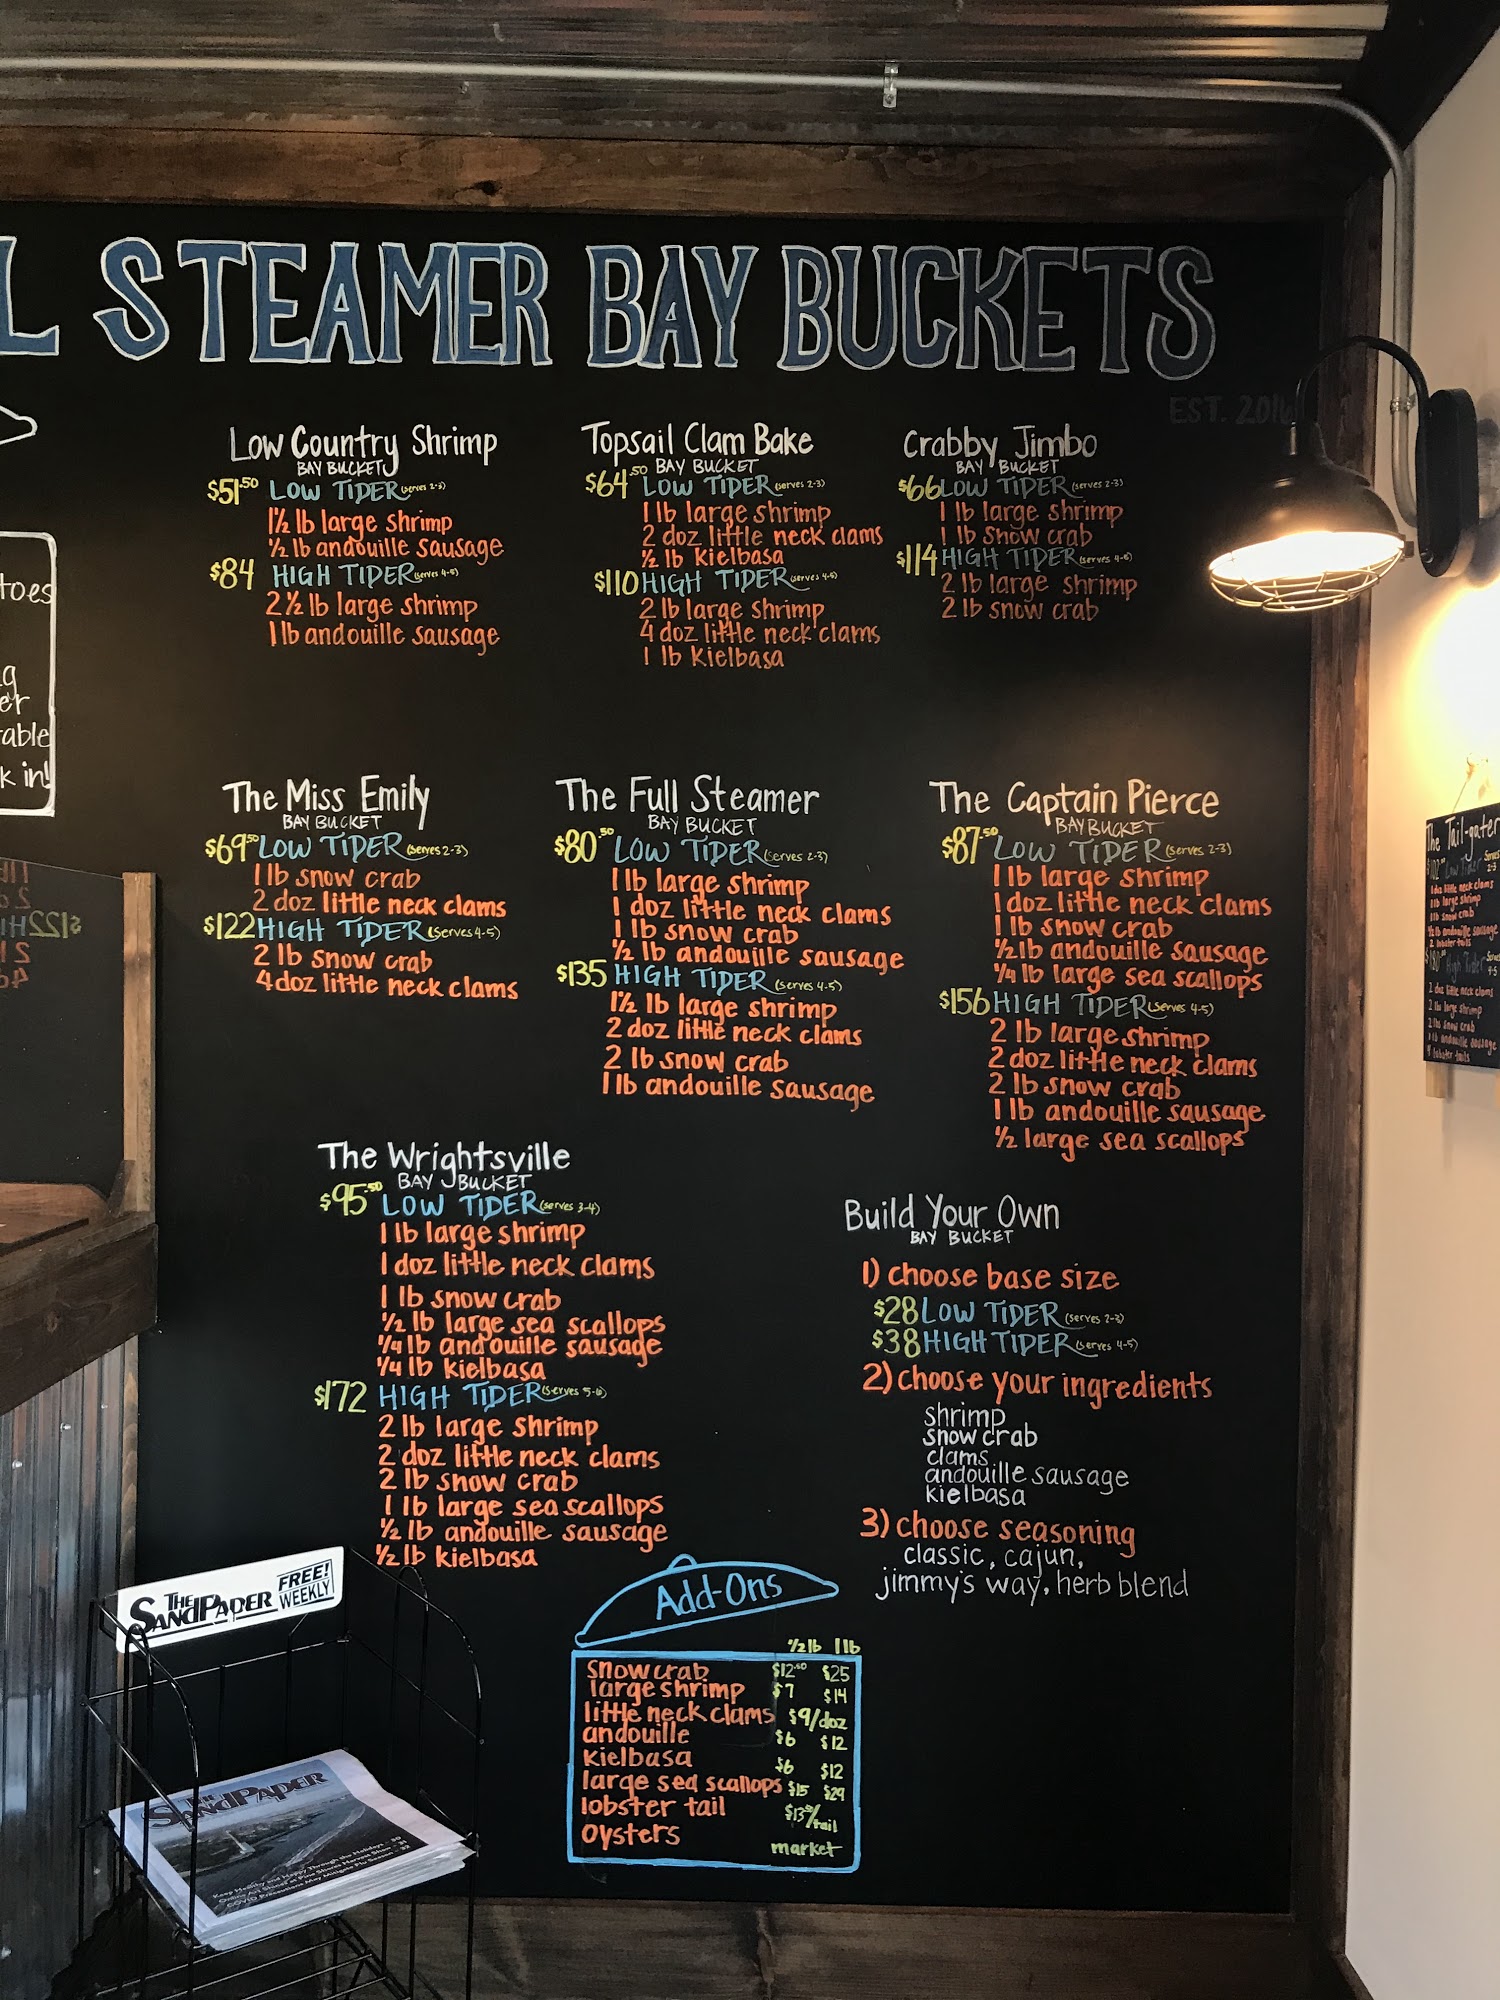 L STEAMER BAY BUCKETS
EST. 2016
Low Country Shrimp
BAY BUCKET
$51.50 LOW TIDER (serves 2-3)
1½ lb large shrimp
½ lb andouille sausage
$84 HIGH TIDER (serves 4-5)
2½ lb large shrimp
1 lb andouille sausage
Topsail Clam Bake
BAY BUCKET
$64.50 LOW TIDER (serves 2-3)
1 lb large shrimp
2 doz little neck clams
½ lb kielbasa
$110 HIGH TIDER (serves 4-5)
2 lb large shrimp
4 doz little neck clams
1 lb kielbasa
Crabby Jimbo
BAY BUCKET
$66 LOW TIDER (serves 2-3)
1 lb large shrimp
1 lb snow crab
$114 HIGH TIDER (serves 4-5)
2 lb large shrimp
2 lb snow crab
toes
g
er
table
k in!
The Miss Emily
BAY BUCKET
$69.50 LOW TIDER (serves 2-3)
1 lb snow crab
2 doz little neck clams
$122 HIGH TIDER (serves 4-5)
2 lb snow crab
4 doz little neck clams
The Full Steamer
BAY BUCKET
$80.50 LOW TIDER (serves 2-3)
1 lb large shrimp
1 doz little neck clams
1 lb snow crab
½ lb andouille sausage
$135 HIGH TIDER (serves 4-5)
1½ lb large shrimp
2 doz little neck clams
2 lb snow crab
1 lb andouille sausage
The Captain Pierce
BAY BUCKET
$87.50 LOW TIDER (serves 2-3)
1 lb large shrimp
1 doz little neck clams
1 lb snow crab
½ lb andouille sausage
¼ lb large sea scallops
$156 HIGH TIDER (serves 4-5)
2 lb large shrimp
2 doz little neck clams
2 lb snow crab
1 lb andouille sausage
½ large sea scallops
The Tail-gater
Low Tider Serves 2-3
1 doz little neck clams
1 lb large shrimp
1 lb snow crab
½ lb andouille sausage
2 lobster tails
High Tider Serves 4-5
2 doz little neck clams
2 lbs large shrimp
2 lbs snow crab
1 lb andouille sausage
lobster tails
The Wrightsville
BAY BUCKET
$95.50 LOW TIDER (serves 3-4)
1 lb large shrimp
1 doz little neck clams
1 lb snow crab
½ lb large sea scallops
¼ lb andouille sausage
¼ lb kielbasa
$172 HIGH TIDER (serves 5-6)
2 lb large shrimp
2 doz little neck clams
2 lb snow crab
1 lb large sea scallops
½ lb andouille sausage
½ lb kielbasa
Build Your Own
BAY BUCKET
1) choose base size
$28 LOW TIDER (serves 2-3)
$38 HIGH TIDER (serves 4-5)
2) choose your ingredients
shrimp
snow crab
clams
andouille sausage
kielbasa
3) choose seasoning
classic, cajun,
jimmy's way, herb blend
Add-Ons
½ lb 1 lb
snow crab $12.50 $25
large shrimp $7 $14
little neck clams $9/doz
andouille $6 $12
kielbasa $6 $12
large sea scallops $15 $29
lobster tail $13.50/tail
oysters market
THE SANDPAPER FREE! WEEKLY
THE SANDPAPER